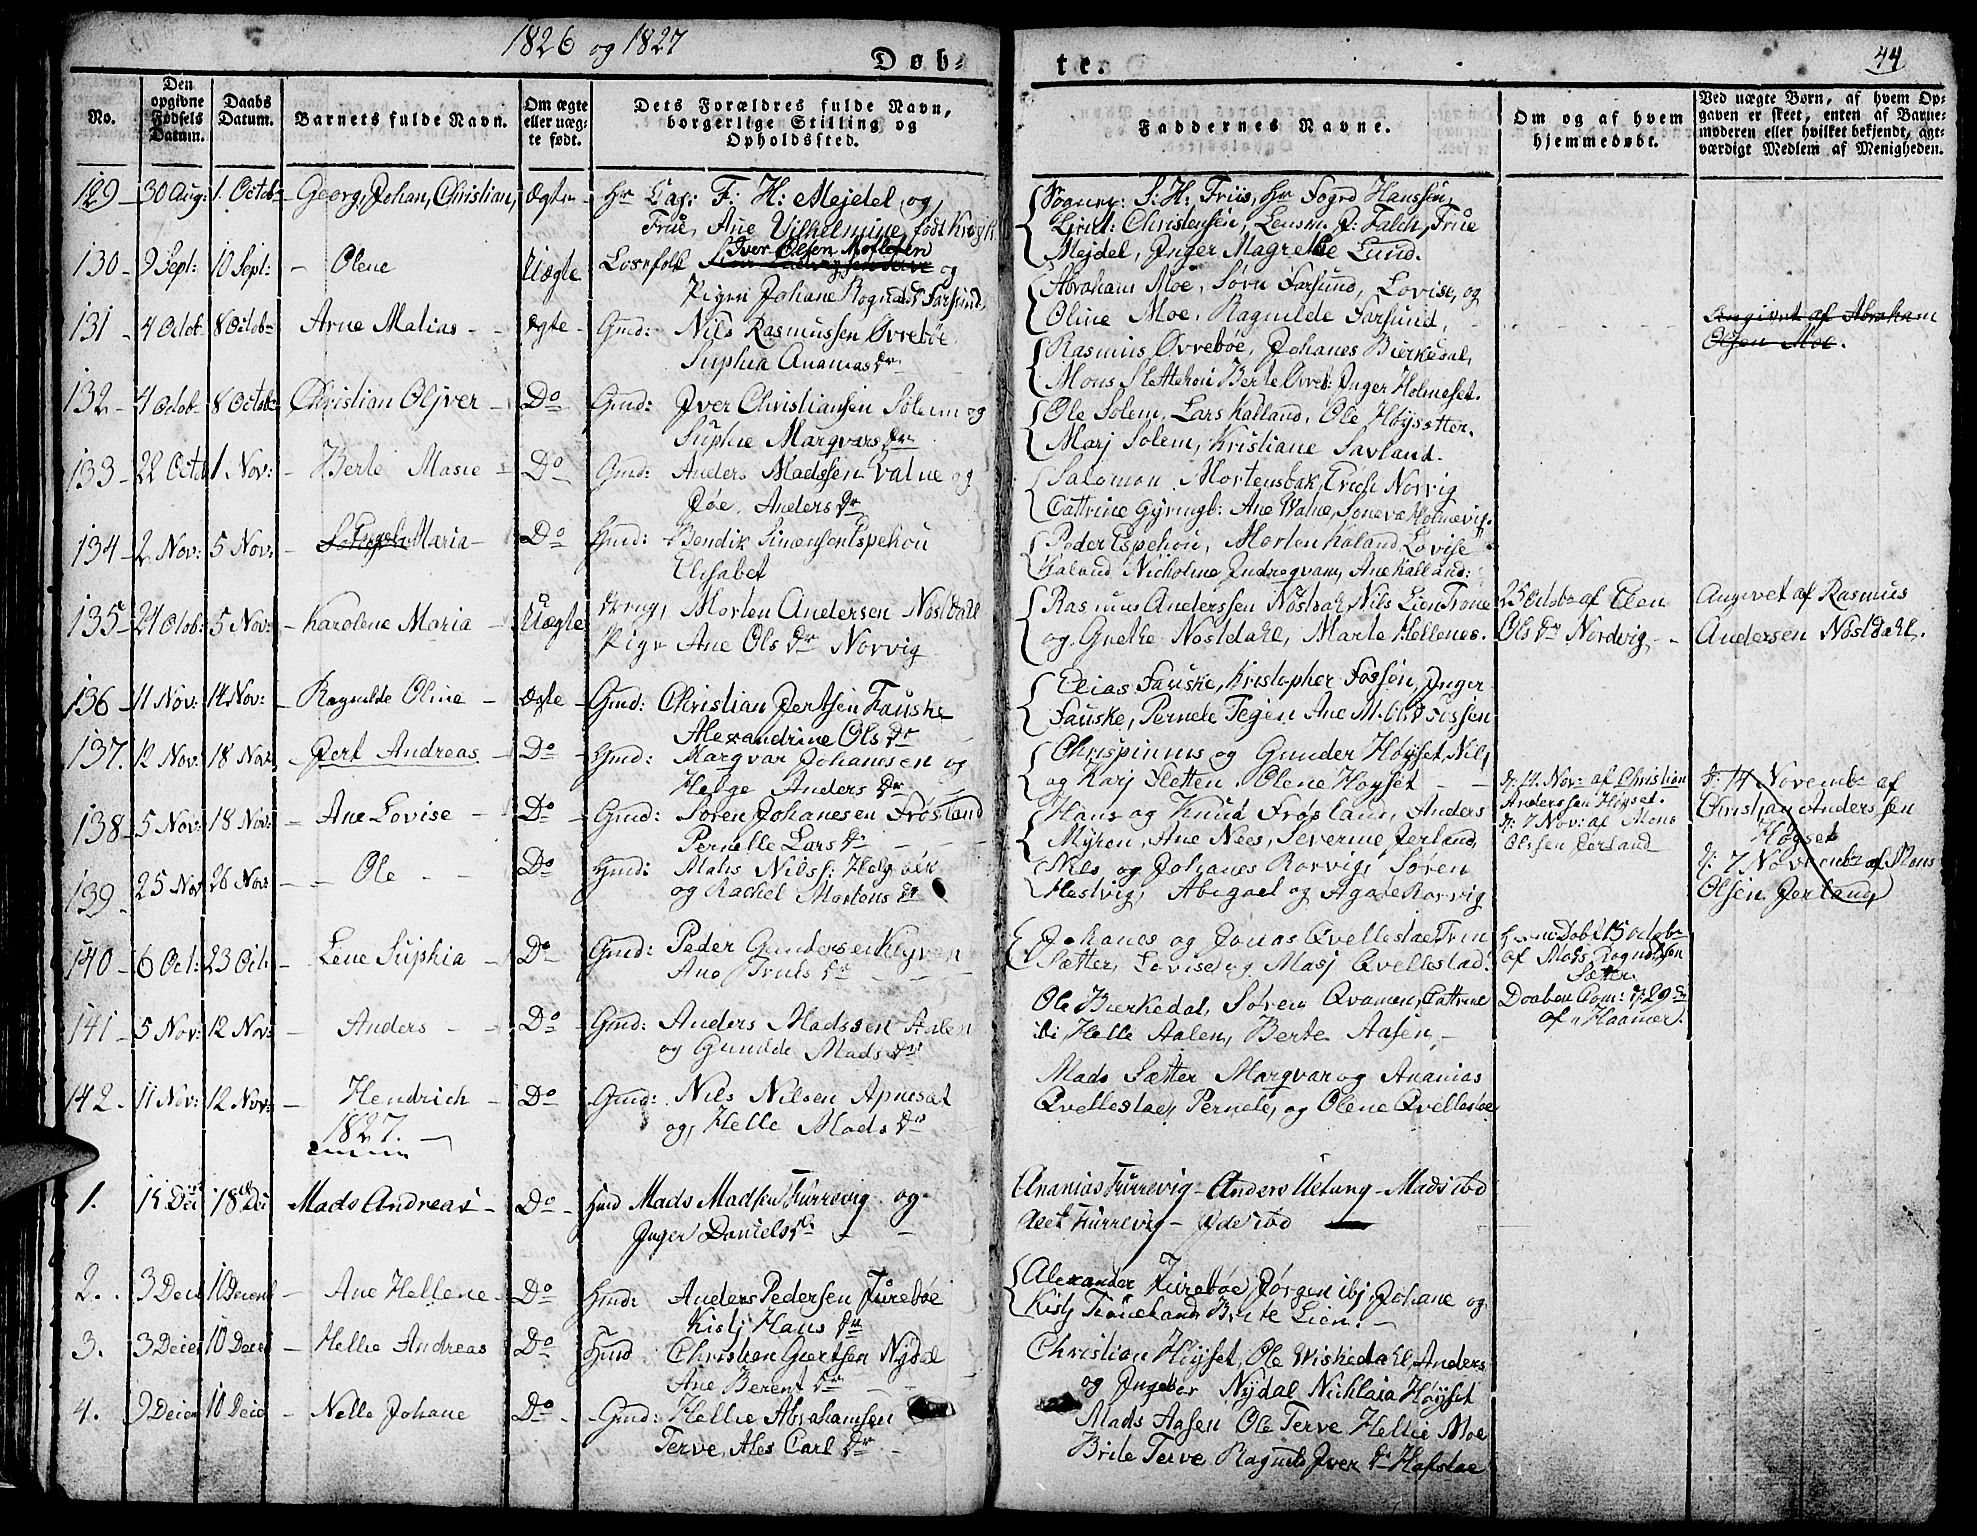 1826 og 1827
Døb-
te.
44
No.
Den opgivne Fødsels Datum.
Daabs Datum.
Barnets fulde Navn.
Om ægte eller uægte født.
Dets Forældres fulde Navn, borgerlige Stilling og Opholdssted.
Faddernes Navne.
Om og af hvem hjemmedøbt.
Ved uægte Børn, af hvem Opgaven er skeet, enten af Barnemoderen eller hvilket bekjendt, agtværdigt Medlem af Menigheden.
129 - 30 Aug: 1. Octob- Georg, Johan, Christian, Ægte - Hr Cap: F: H: Mejdel og
Frue, Ane Vilhelmine født
S: H: Friis, Hr Hanssen,
Christensen, Lensm. Falch, Frue
Mejdel, Inger Magrethe Lund.
130 - 9 Sept: 10 Sept: - Olene Uægte Iver Olsen og
Pigen Johane Farsund,
Abraham Moe, Sørn Farsund, Lovise, og
Oline Moe, Ragnilde Farsund,
Angivet af Abraham
Olsen Moe.
131 4 Octob- 8 Octob- Arne Matias - - Ægte - Gmd: Nils Rasmussen Øvrebøe
Suphia Ananias Dr
Rasmus Øvrebøe, Johanes Bierkedal,
Mons Berte Inger Holmeset.
132 - 4 Octob- 8 Octob- Christian Oljver - Do Gmd: Iver Christiansen Solem og
Suphie Marqvars Dr
Ole Solem, Lars Kalland, Ole Höysetter,
Marj Solem, Kristiane Savland.
133 - 22 Octb 1 Nov: - Berte Masie - Do Gmd: Anders Madssen Valne og
Anders Dr
Salomon Mortensbak, Erich Norvig
Cattrine Ane Valne,
134 - 2 Nov: 5 Nov: - Maria - Do Hmd: Bendik Espehou
Elisabet
Peder Espehou, Morten Kaland Lovise
Kaland Nicholine Ane Kalland:
135 - 24 Octob: 5 Nov: - Karolene Maria - Uægte Dreng, Morten Andersen Nöstdall
Pige Ane Ols Dr Norvig
Rasmus Anderssen Nöstdal, Nils Lien
og Grethe Nöstdahl, Marte Hellenes.
25 Octob- af Elen
Ols Dr Nordvig -
Angivet af Rasmus
Andersen Nöstdahl.
136 - 11 Nov: 14 Nov: - Ragnilde Oline - Ægte - Gmd: Christian Jertsen Fauske
Alexandrine Ols Dr
Elias Fauske, Kristopher Fossen, Inger
Fauske, Pernele Tegen Ane M.
137. 12 Nov: 18 Nov: - Jert Andreas - Do - Hmd: Margvar Johansen og
Helge Anders Dr
Chrispinus og Gunder Höyset, Nils
og Karj Sletten, Olene Höyset - -
d: 14. Nov: af Christian
Anderssen Höyset.
d: 14 Novemb- af
Christian Anderssen
Höyset
138 - 5 Nov: 18 Nov: - Ane Lovise - Do - Gmd: Sören Johanesen Frösland
Pernelle Lars Dr
Hans og Knud Frösland, Anders
Myren, Ane Nees, Severine Jerland,
d: 7 Nov: af Mons
Olssen Jerland
d: 7 Novemb- af Mons
Olsen Jerland
139. 25 Nov 26 Nov - - Ole - - Do Hmd: Mads Nilss:
og Rachel Mortens Dr
Nils og Johanes Rorvig, Sören
Hestvig, Abigael og Agate Rorvig
140 - 6 Oct: 23 Oct: - Lene Suphia - Do - Gmd: Peder Gundersen
Ane Truls Dr
Johanes og Jonas Qvellestae
Sætter, Lovise og Masj Qvellestad.
15 octob-
af Mads
Sætter.
141 - 5 Nov: 12 Nov: - Anders - - Do - Gmd: Anders Madssen Aalen
og Gunilde Mads Dr
Ole Bierkedal, Sören Qvamen, Cattrine
Helle Aalen, Berte Aasen, -
Daaben Com: d: 29
af Haamer.
142. 11 Nov: 12 Nov: - Hendrich - Do - Gmd: Nils Nilsen Apneset
og, Helle Mads Dr
Mads Sætter Margvar og Ananias
Qvellestae, Pernele, og Olene Qvellestae
1827. -
1. 15 Dec 18 Dec Mads Andreas - Do - Gmd Mads Madsen Furrevig og
Inger Daniels Dr - -
Ananias Furrevig - Anders Uetung - Mads
Furrevig -
2. 3 Dece 10 Decemb - Ane Hellene - Do Gmd: Anders Pedersen Furebøe
Kistj Hans Dr
Alexander Furebøe, Jörgen ibj, Johane og
Kistj Brite Lien. -
3. 3 Decem 10 Decem - Hellie Andreas Do Gmd Christian Giertsen Nydal
Ane Berent Dr - -
Christian Höyset, Ole Wiskedahl, Anders
og Ingebor Nydal Nichlaia Höyset
4. 9 Decem 10 Dece - Nelle Johane Do - - Gmd: Hellie Abrahamsen
Terve, Ales Carl Dr -
Mads Aasen Ole Terve Hellie Moe
Brite Terve Ragnild Iver Dr Hafstae